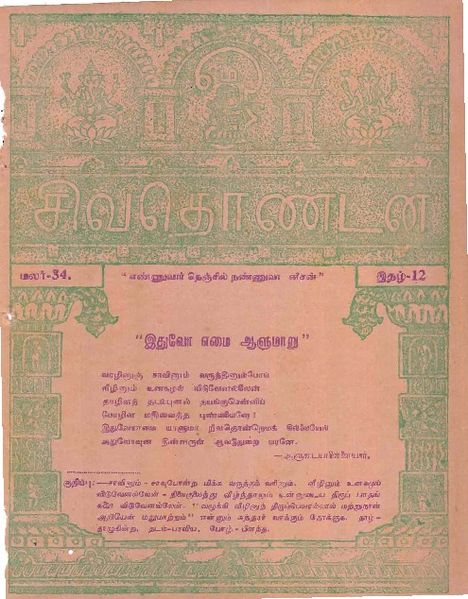 சிவதொண்டன்
மலர்-34.
"எண்ணுவார் நெஞ்சில் நண்ணுவா னீசன்"
இதழ்-12
"இதுவோ எமை ஆளுமாறு"
வாழினுஞ் சாவினும் வருந்தினும்போய்
வீழினும் உனகழல் விடுவேனல்லேன்
தாழிளந் தடம்புனல் தயங்குசென்னிப்
போழிள மதிவைத்த புண்ணியனே!
இதுவோஎமை யாளுமா றீவதொன்றெமக் கில்லையேல்
அதுவோவுன தின்னருள் ஆவடுதுறை யரனே.
—ஆளுடையபிள்ளையார்.
குறிப்பு:—சாவினும்-சாவுபோன்ற மிக்க வருத்தம் வரினும். வீழினும் உனகழல்
விடுவேனல்லேன்-நிலைகுலைந்து வீழ்ந்தாலும் உன்னுடைய திருப் பாதங்
களை விடுவேனல்லேன். "வழுக்கி வீழினுந் திருப்பெயரல்லால் மற்றுநான்
அறியேன் மறுமாற்றம்" என்னும் சுந்தரர் வாக்கும் நோக்குக. தாழ்-
தாழுகின்ற, தடம்-பரவிய, போழ்-பிளந்த.